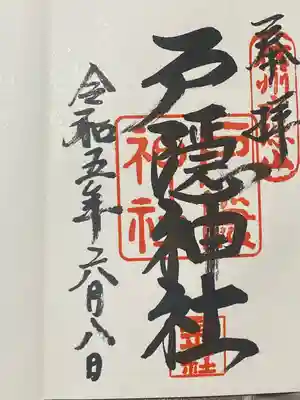 奉拝
戸隠神社
令和五年六月八日
神社